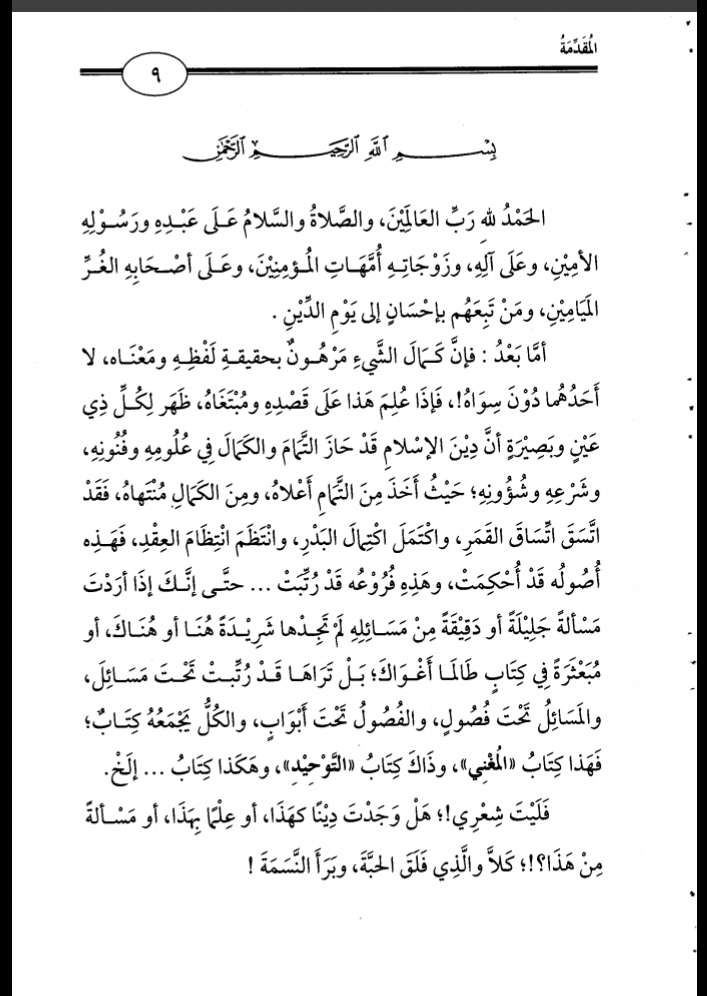 المُقَدِّمَةُ
٩
بِسْمِ اللَّهِ الرَّحْمَنِ الرَّحِيمِ
الحَمْدُ للهِ رَبِّ العَالَمِيْنَ، والصَّلاةُ والسَّلامُ عَلَى عَبْدِهِ ورَسُوْلِهِ
الأمِيْنِ، وعَلَى آلِهِ، وزَوْجَاتِهِ أُمَّهَاتِ المُؤمِنِيْنَ، وعَلَى أصْحَابِهِ الغُرِّ
المَيَامِيْنِ، ومَنْ تَبِعَهُم بإحْسَانٍ إلى يَوْمِ الدِّيْنِ .
أمَّا بَعْدُ : فإنَّ كَمَالَ الشَّيءِ مَرْهُونٌ بحقيقةِ لَفْظِهِ ومَعْنَاه، لا
أحَدُهُما دُوْنَ سِوَاهُ!، فَإذَا عُلِمَ هَذا عَلَى قَصْدِهِ ومُبْتَغَاهُ، ظَهَر لِكُلِّ ذِي
عَيْنٍ وبَصِيْرَةٍ أنَّ دِيْنَ الإسْلامِ قَدْ حَازَ التَّمَامَ والكَمَالَ فِي عُلُومِهِ وفُنُونِهِ،
وشَرْعِهِ وشُؤُونِهِ؛ حَيْثُ أخَذَ مِنَ التَّمامِ أعْلاهُ، ومِنَ الكَمَالِ مُنْتَهاهُ، فَقَدْ
اتَّسَقَ اتِّسَاقَ القَمَرِ، واكْتَمَلَ اكْتِمالَ البَدْرِ، وانْتَظَمَ انْتِظَامَ العِقْدِ، فَهَذِه
أُصُولُه قَدْ أُحْكِمَتْ، وهَذِهِ فُرُوْعُه قَدْ رُتِّبَتْ ... حتَّى إنَّكَ إذَا أرَدْتَ
مَسْألةً جَلِيْلَةً أو دَقِيْقَةً مِنْ مَسَائِلِهِ لَمْ تَجِدْها شَرِيْدَةً هُنَا أو هُنَاكَ، أو
مُبَعْثَرَةً فِي كِتَابٍ طَالمَا أغْوَاكَ؛ بَلْ تَرَاهَا قَدْ رُتِّبتْ تَحْتَ مَسَائِلَ،
والمَسَائِلُ تَحْتَ فُصُولٍ، والفُصُولُ تَحْتَ أبْوَابٍ، والكُلُّ يَجْمَعُهُ كِتَابٌ؛
فَهَذا كِتَابُ «المُغْنِي»، وذَاكَ كِتَابُ «التَّوْحِيْدِ»، وهَكَذا كِتَابُ ... إلَخْ.
فَلَيْتَ شِعْرِي!؛ هَلْ وَجَدْتَ دِيْنًا كهَذَا، أو عِلْمًا بِهَذَا، أو مَسْألةً
مِنْ هَذَا؟!؛ كَلاَّ والَّذِي فَلَقَ الحبَّةَ، وبَرَأ النَّسَمَةَ !